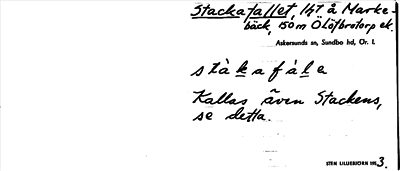 Stackafallet, lht å Marke-
bäck, 150 m Ö Löfbrotorp ek.
Askersunds sn, Sundbo hd, Ör. l.
s t à k a f á l e
Kallas även Stackens,
se detta.
STEN LILLIEBJÖRN 195 3.